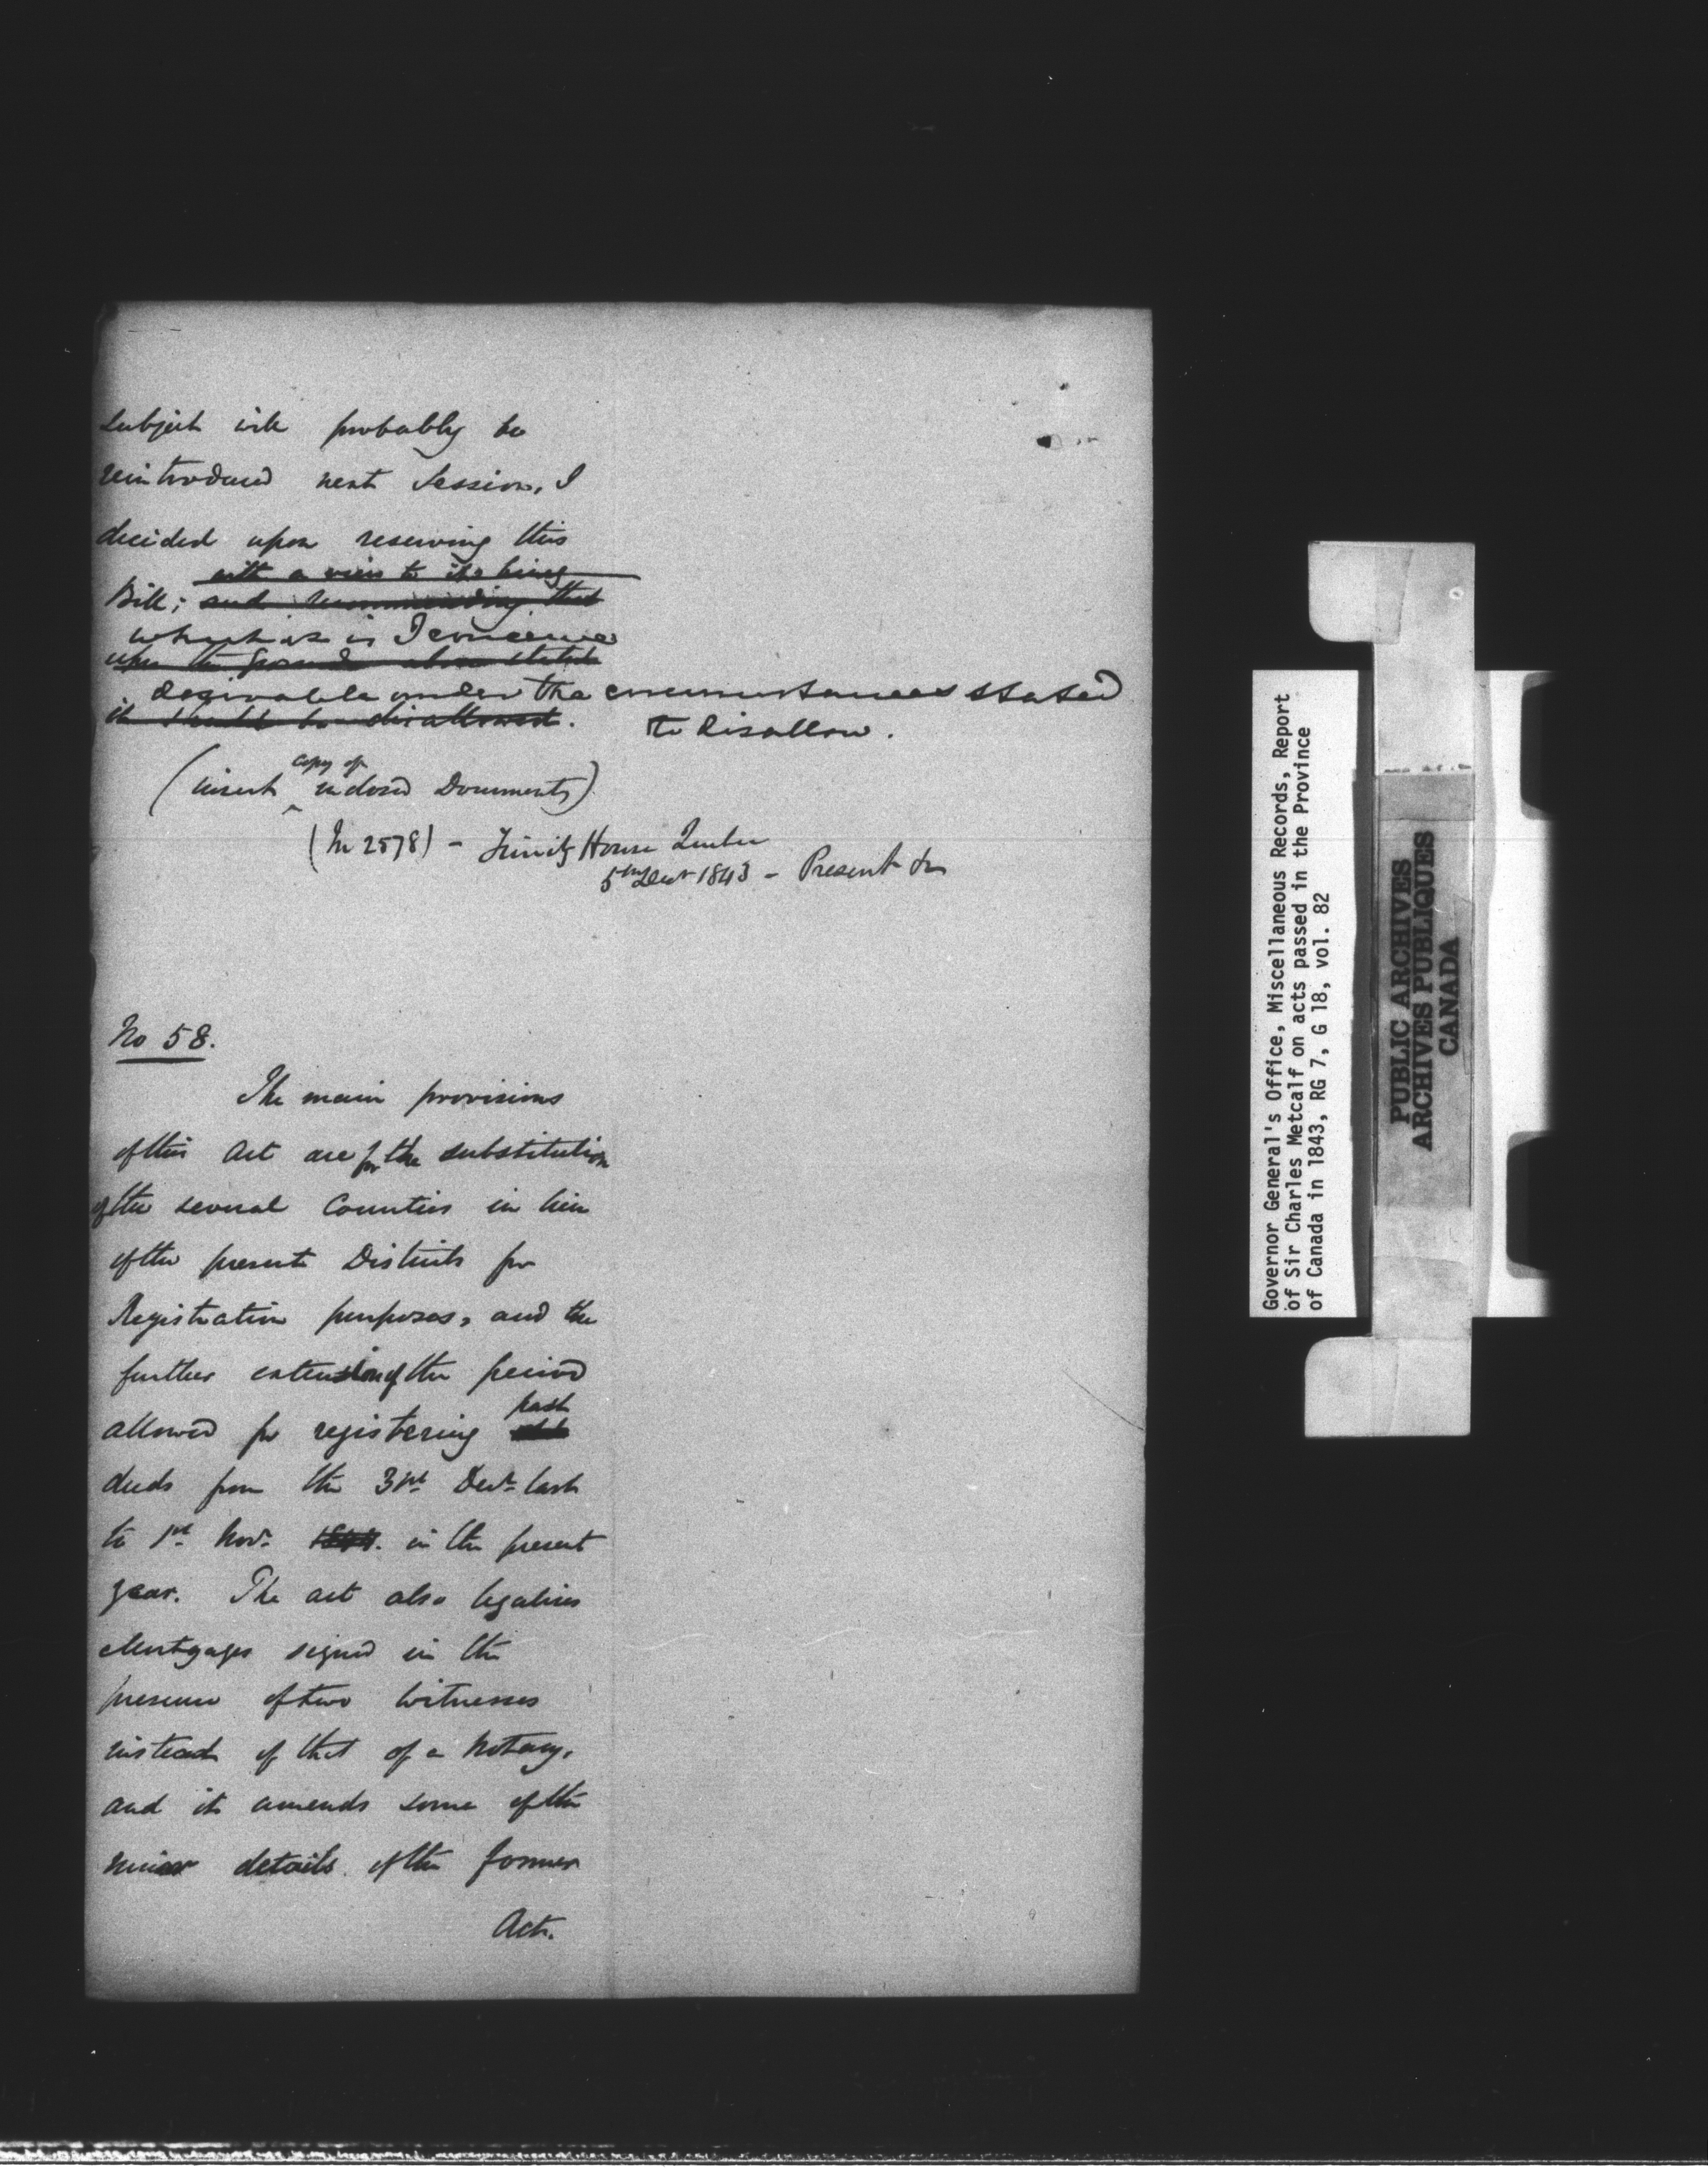 subject will probably be
reintroduced next Session, I
decided upon reserving this
with a view to its being
Bill; and recommending that
which it is I conceive
upon the grounds above stated
desirable under the circumstances stated
it should be disallowed. to disallow.
copy of
(insert enclosed Documents)
(In 2578) - Trinity House Quebec
5th Decr 1843 - Present &c
No 58.
The main provisions
of this Act are for the substitution
of the several Counties in lieu
of the present Districts for
Registration purposes, and the
further extension of the period
past
allowed for registering old
deeds from the 31st Decr last
to 1st Novr 1844. in the present
year. The act also legalises
Mortgages signed in the
presence of two witnesses
instead of that of a Notary,
and it amends some of the
minor details of the former
Act.
Governor General's Office, Miscellaneous Records, Report
of Sir Charles Metcalf on acts passed in the Province
of Canada in 1843, RG 7, G 18, vol. 82
PUBLIC ARCHIVES
ARCHIVES PUBLIQUES
CANADA